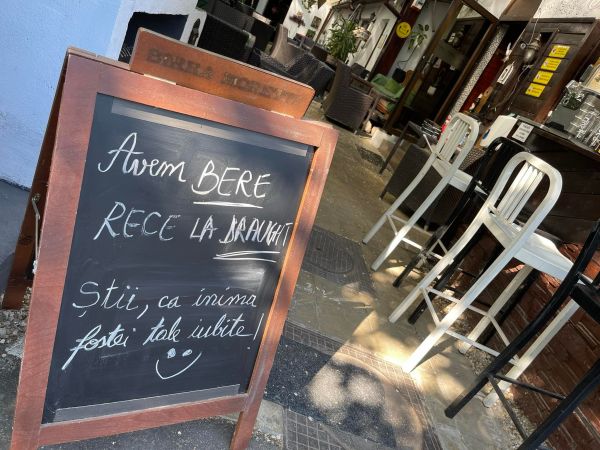 Avem BERE
RECE LA DRAUGHT
Știi, ca inima
fostei tale iubite!